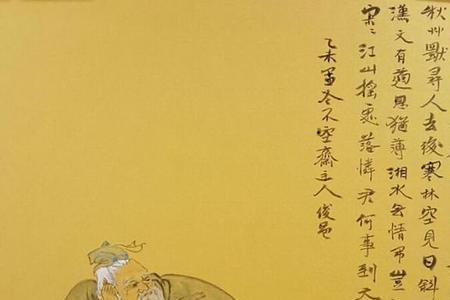 秋艸獨尋人去後寒林空見日斜
漢文有道恩猶薄湘水无情弔豈
寂〻江山摇處落憐君何事到天
乙未孟冬不空齋主人俊邑